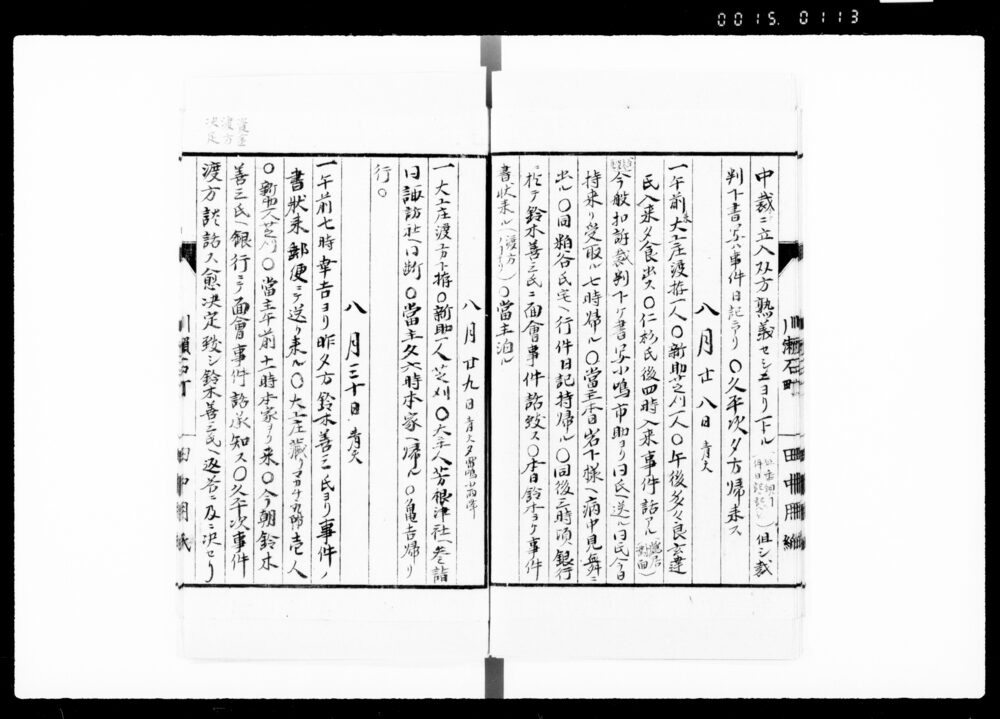 0015.0113
中裁ニ立入双方熟義セシニヨリ下ル 但シ裁
判下書写ハ事件日記ニアリ 〇久平次夕方帰リ来ス
八月廿八日 青天
一午前大工庄渡拵一人〇新助芝刈一人〇午後
氏入来夕食出ス〇仁杉氏後四時入来事件話アル
今般扣訴裁判下ケ書写小嶋市助ヨリ同氏ヘ送ル同氏今日
持来リ受取ル七時帰ル〇當主本日岩下様ヘ病中見舞ニ
出ル〇同粕谷氏宅ヘ行件日記持帰ル〇同後三時頃銀行
ニ於テ鈴木善三氏ニ面會事件話致ス〇本日鈴木ヨリ事件
書状来ル(渡方)〇當主泊ル
八月廿九日 青天夕雷鳴
一大工庄渡方下拵〇新助一人芝刈〇大主人芳根津社ヘ参詣
同諏訪社ヘ同断〇當主夕六時本家ヘ帰ル〇亀吉帰リ
行〇
八月三十日 青天
一午前七時幸吉ヨリ昨夕方鈴木善三氏ヨリ事件ノ
書状来郵便ニテ送リ来ル〇大工庄藏 壱人
〇新助一人芝刈〇當主午前十一時本家ヨリ来〇今朝鈴木
善三氏銀行ニテ面會事件話承知ス〇久平次事件
渡方談話ス愈决定致シ鈴木善三氏ヘ返答ニ及ニ决セリ
渡方
决定
田中用紙